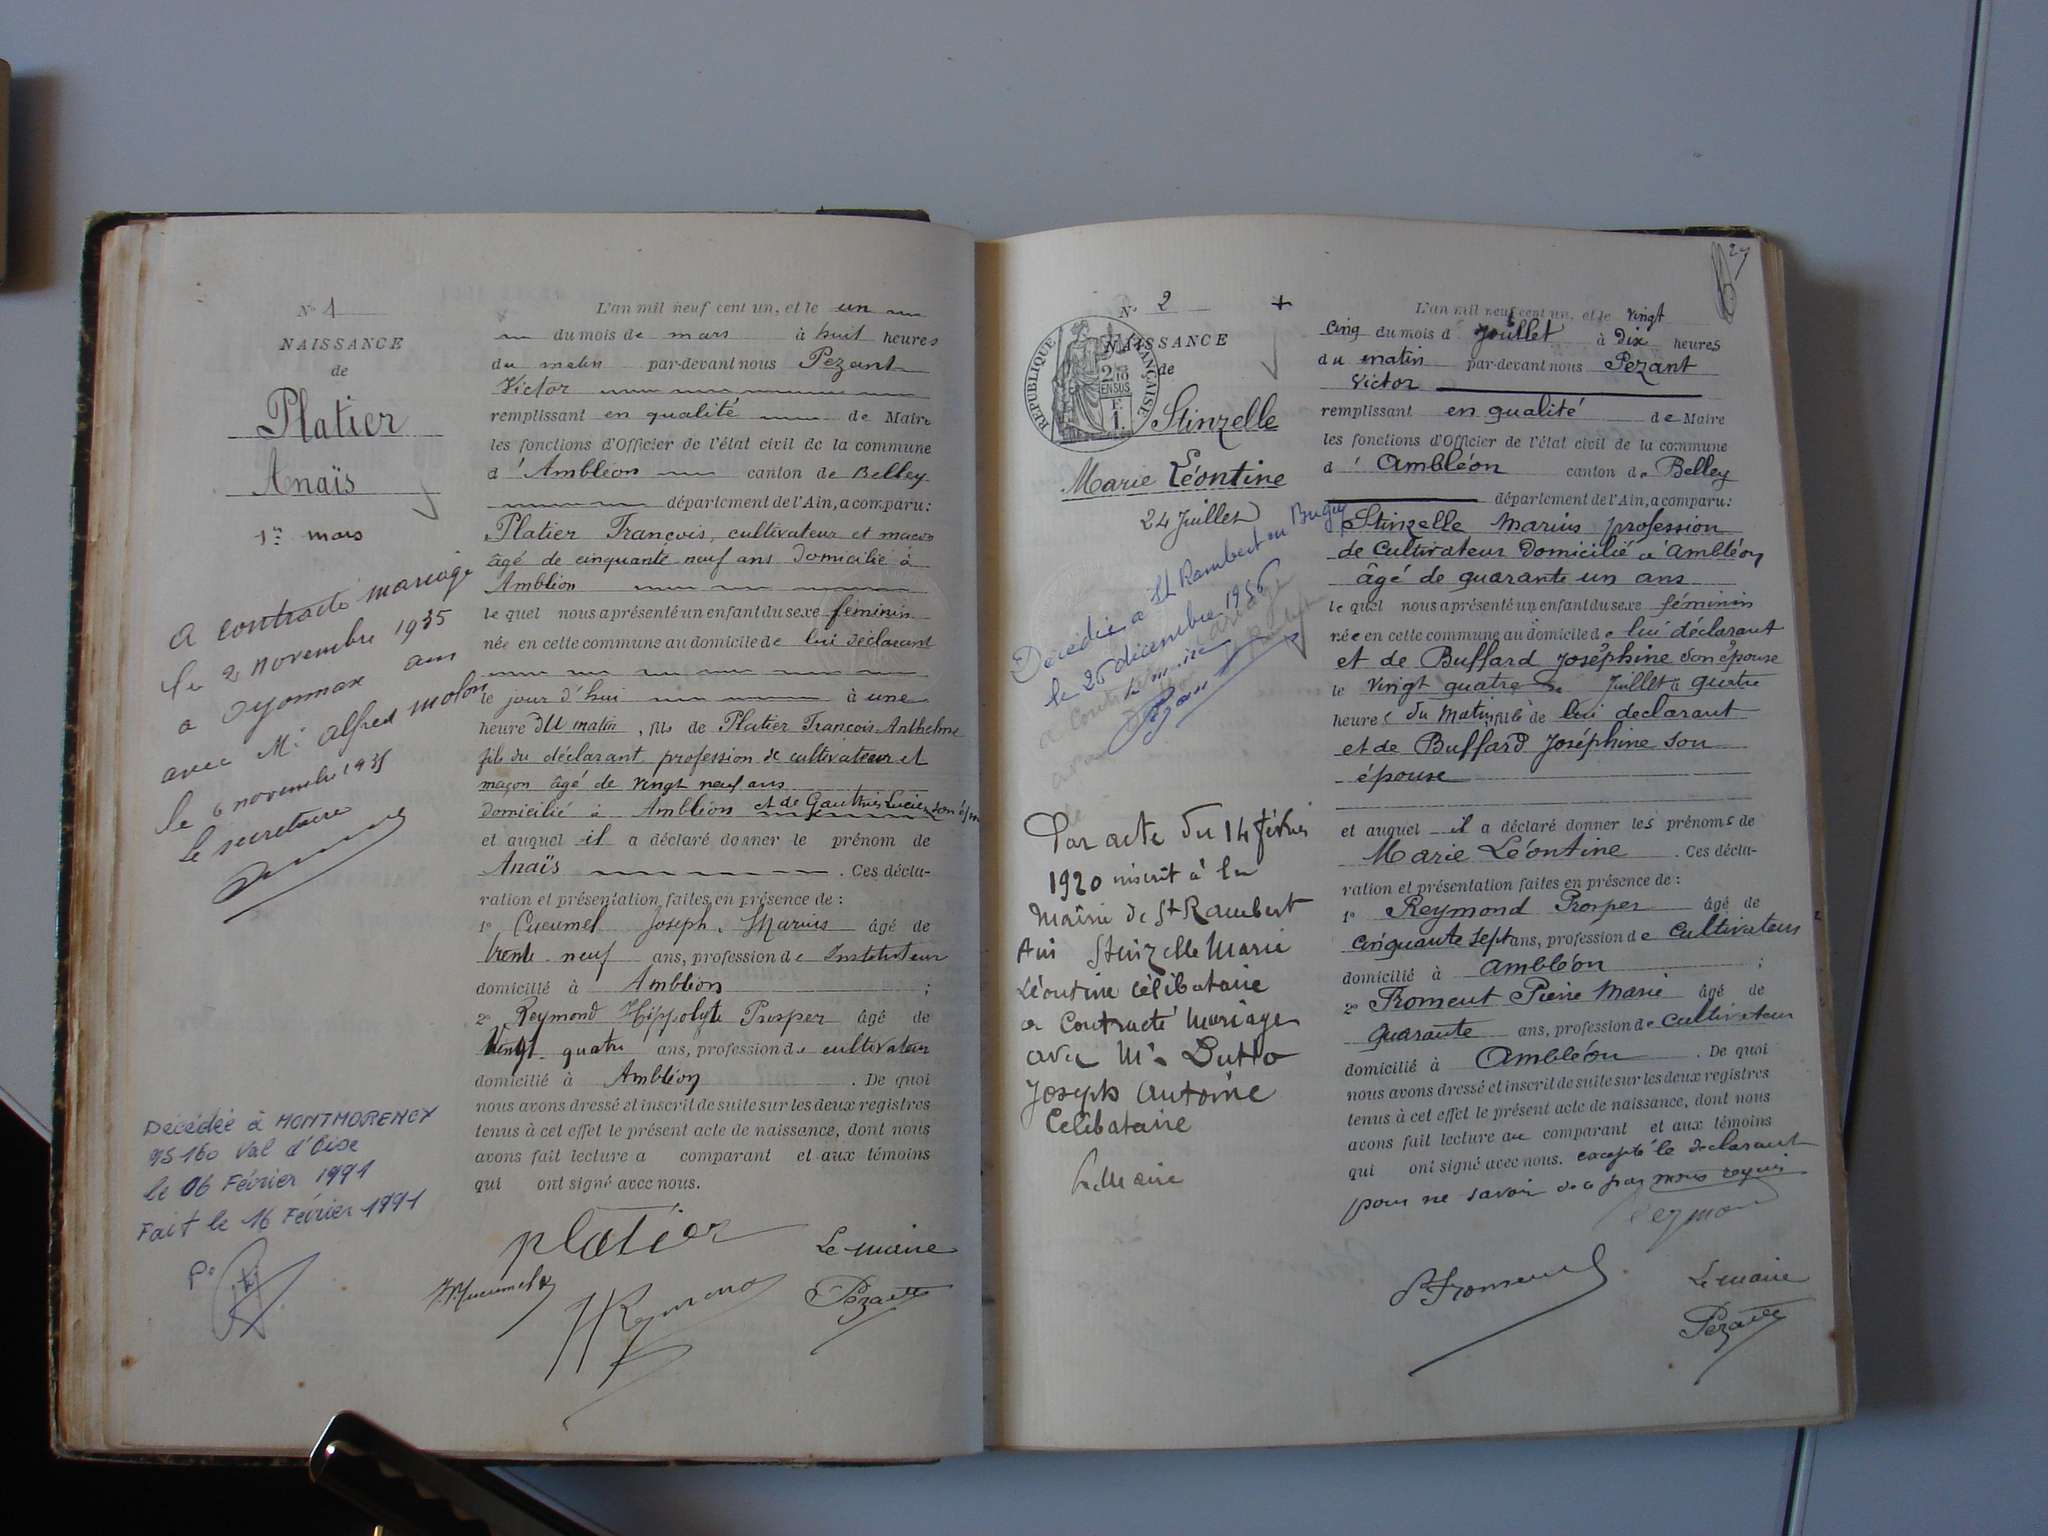 N° 1
NAISSANCE
de
Platier
Anaïs
1er mars
a contracté mariage
le 2 novembre 1935
a Oyonnax ain
avec Mr alfred molon
le 6 novembre 1935
le secretaire
Décédée à MONTMORENCY
95160 Val d'Oise
le 06 Février 1991
Fait le 16 Février 1991
L'an mil neuf cent un, et le un
du mois de mars à huit heures
du matin par-devant nous Pezant
Victor
remplissant en qualité de Maire
les fonctions d'Officier de l'état civil de la commune
d'Ambléon canton de Belley
département de l'Ain, a comparu :
Platier François, cultivateur et maçon
âgé de cinquante neuf ans domicilié à
Ambléon
le quel nous a présenté un enfant du sexe féminin
née en cette commune au domicile de lui déclarant
le jour d'hui à une
heure du matin, fils de Platier François Anthelme
fils du déclarant profession de cultivateur et
maçon âgé de vingt neuf ans
domicilié à Ambléon et de Gauthier Lucie son
et auquel il a déclaré donner le prénom de
Anaïs . Ces décla-
ration et présentation faites en présence de :
1° Cucumel Joseph Marius âgé de
trente neuf ans, profession de Instituteur
domicilié à Ambléon ;
2° Reymond Hippolyte Prosper âgé de
vingt quatre ans, profession de cultivateur
domicilié à Ambléon . De quoi
nous avons dressé et inscrit de suite sur les deux registres
tenus à cet effet le présent acte de naissance, dont nous
avons fait lecture a comparant et aux témoins
qui ont signé avec nous.
Platier Le maire
Cucumel HReymond Pezant
27
N° 2
NAISSANCE
de
REPUBLIQUE FRANÇAISE
2/10
EN SUS
F
1
Stinzelle
Marie Léontine
24 Juillet
Décédée a St Rambert en Bugey
le 26 décembre 1956
le maire
Par acte du 14 février
1920 inscrit à la
Mairie de St Rambert
Ain Stinzelle Marie
Léontine célibataire
a contracté Mariage
avec Mr Dutto
Joseph Antoine
Célibataire
Le Maire
L'an mil neuf cent un, et le vingt
cinq du mois d Juillet à Dix heures
du matin par-devant nous Pezant
Victor
remplissant en qualité de Maire
les fonctions d'Officier de l'état civil de la commune
d'Ambléon canton de Belley
département de l'Ain, a comparu :
Stinzelle Marius profession
de Cultivateur Domicilié a Ambléon
âgé de quarante un ans
le quel nous a présenté un enfant du sexe féminin
née en cette commune au domicile de lui déclarant
et de Buffard Joséphine son épouse
le vingt quatre Juillet à quatre
heures du Matin, fille de lui declarant
et de Buffard Joséphine son
épouse
et auquel il a déclaré donner les prénoms de
Marie Léontine . Ces décla-
ration et présentation faites en présence de :
1° Reymond Prosper âgé de
cinquante sept ans, profession de Cultivateur
domicilié à Ambléon ;
2° Froment Pierre Marie âgé de
quarante ans, profession de cultivateur
domicilié à Ambléon . De quoi
nous avons dressé et inscrit de suite sur les deux registres
tenus à cet effet le présent acte de naissance, dont nous
avons fait lecture au comparant et aux témoins
qui ont signé avec nous. excepté le declarant
pour ne savoir de ce par nous requis
Reymond
P Froment Le maire
Pezant